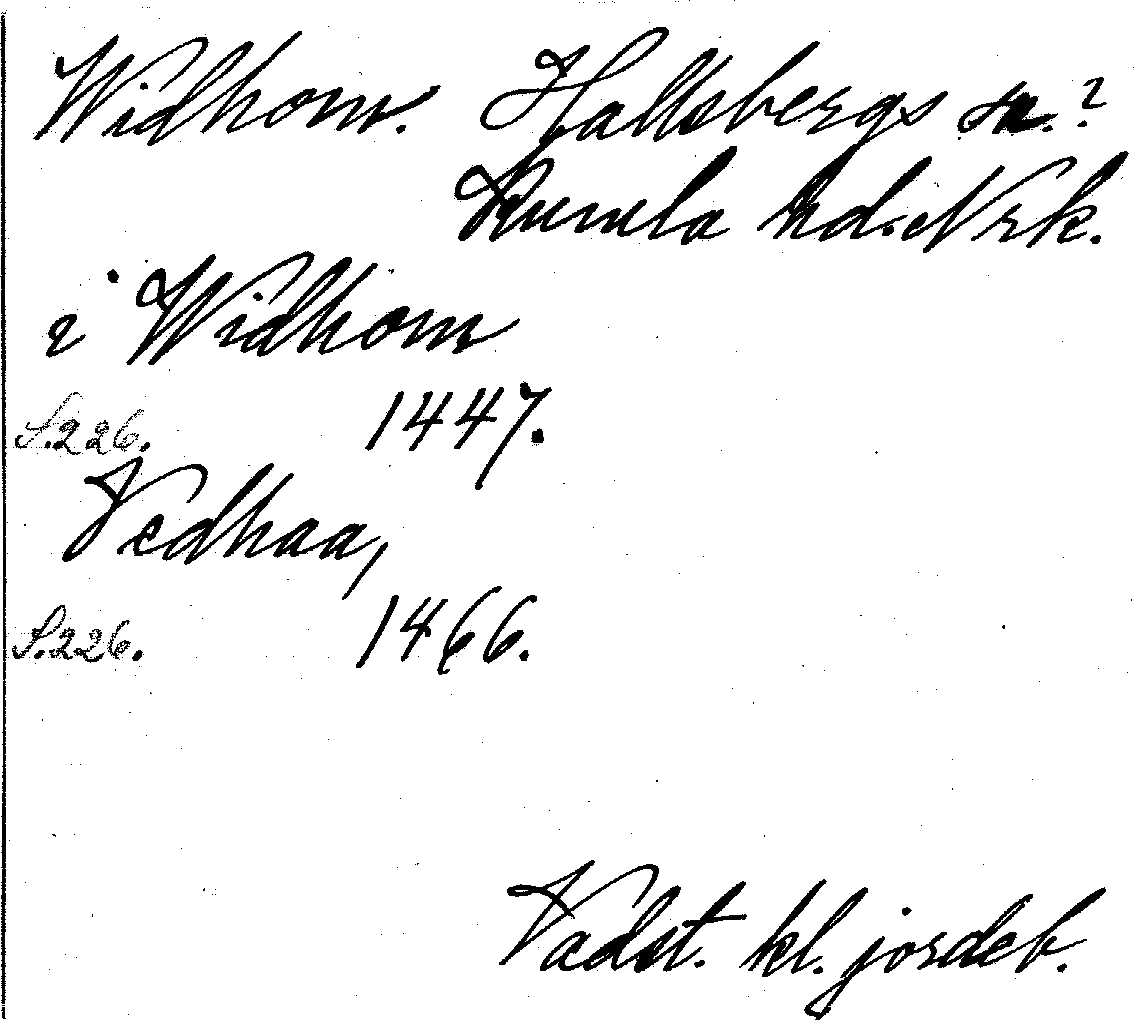 Widhom. Hallsbergs sn.?
Kumla hd. Nrk.
i Widhom
S.226. 1447.
Vedhaa,
S.226. 1466.
Vadst. kl. jordeb.